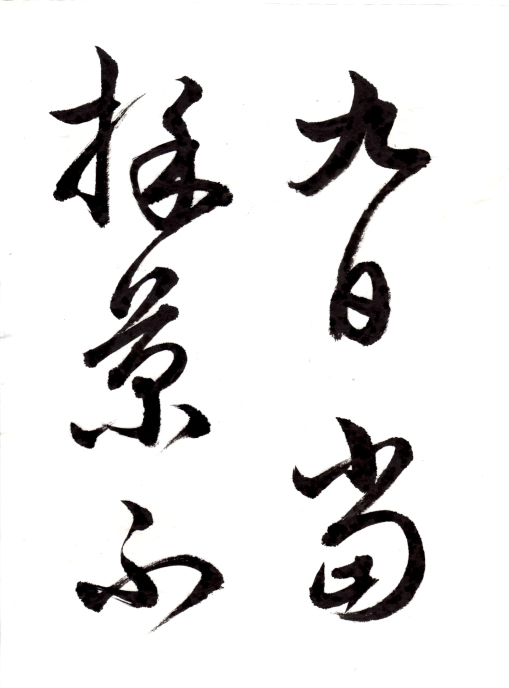 九日當
採菊不